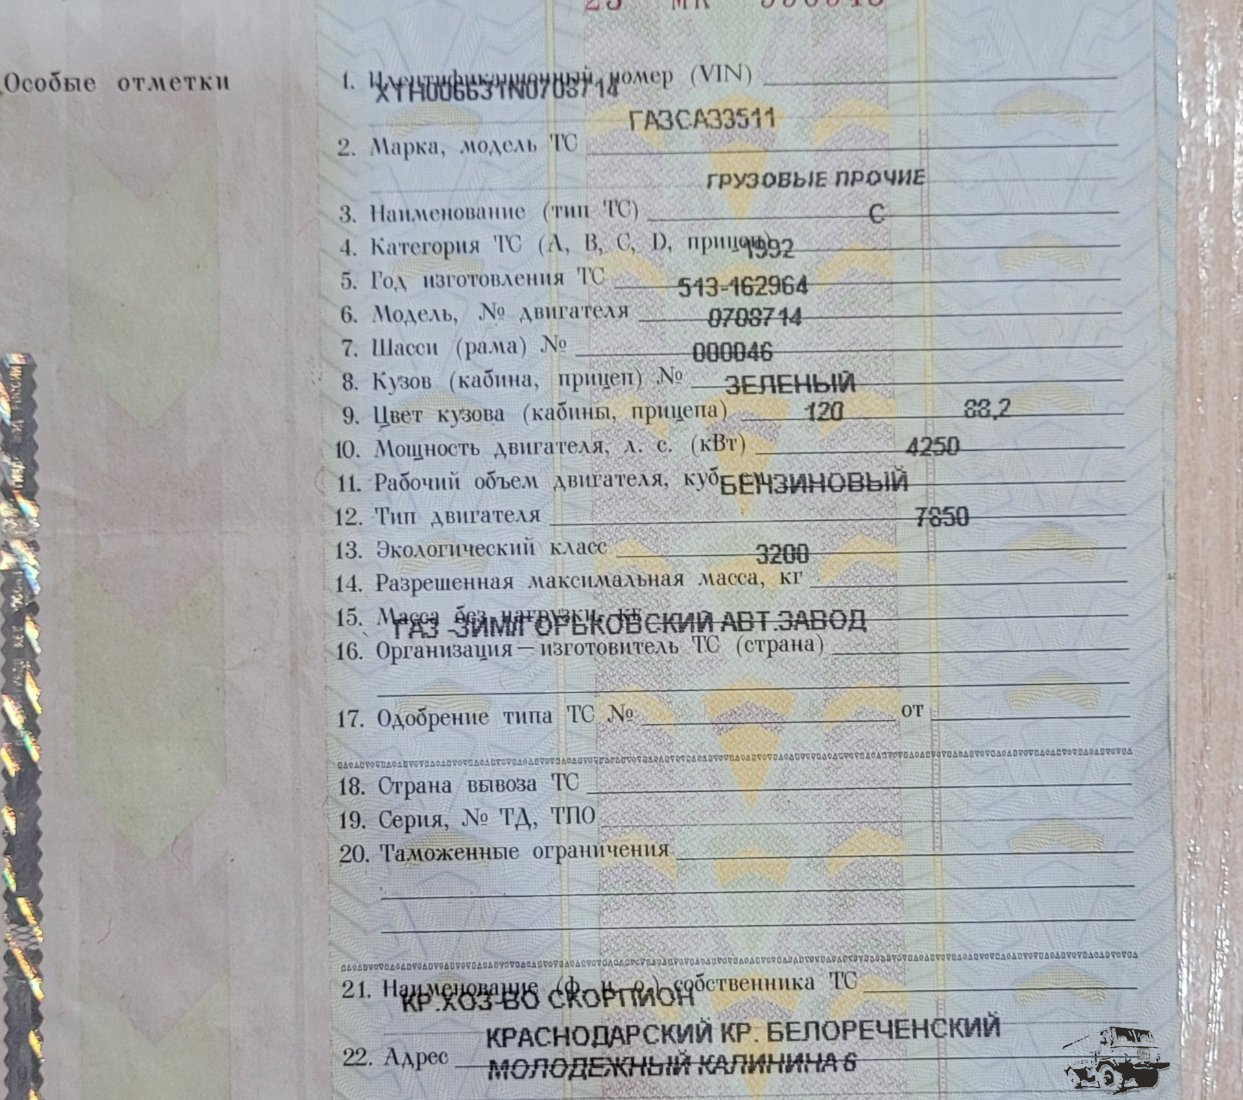 Особые отметки
1. Идентификационный номер (VIN)
XTH006631N0708714
ГАЗСАЗ3511
2. Марка, модель ТС
ГРУЗОВЫЕ ПРОЧИЕ
3. Наименование (тип ТС)
C
4. Категория ТС (A, B, C, D, прицеп)
1992
5. Год изготовления ТС
513-162964
6. Модель, № двигателя
0708714
7. Шасси (рама) №
000046
8. Кузов (кабина, прицеп) №
ЗЕЛЕНЫЙ
9. Цвет кузова (кабины, прицепа)
120 88,2
10. Мощность двигателя, л. с. (кВт)
4250
11. Рабочий объем двигателя, куб.
БЕНЗИНОВЫЙ
12. Тип двигателя
7850
13. Экологический класс
3200
14. Разрешенная максимальная масса, кг
15. Масса без нагрузки, кг
ГАЗ -ЗИМЛ ГОРЬКОВСКИЙ АВТ.ЗАВОД
16. Организация—изготовитель ТС (страна)
17. Одобрение типа ТС № от
18. Страна вывоза ТС
19. Серия, № ТД, ТПО
20. Таможенные ограничения
21. Наименование (ф. и. о.) собственника ТС
КР.ХОЗ-ВО СКОРПИОН
КРАСНОДАРСКИЙ КР. БЕЛОРЕЧЕНСКИЙ
22. Адрес
МОЛОДЕЖНЫЙ КАЛИНИНА 6